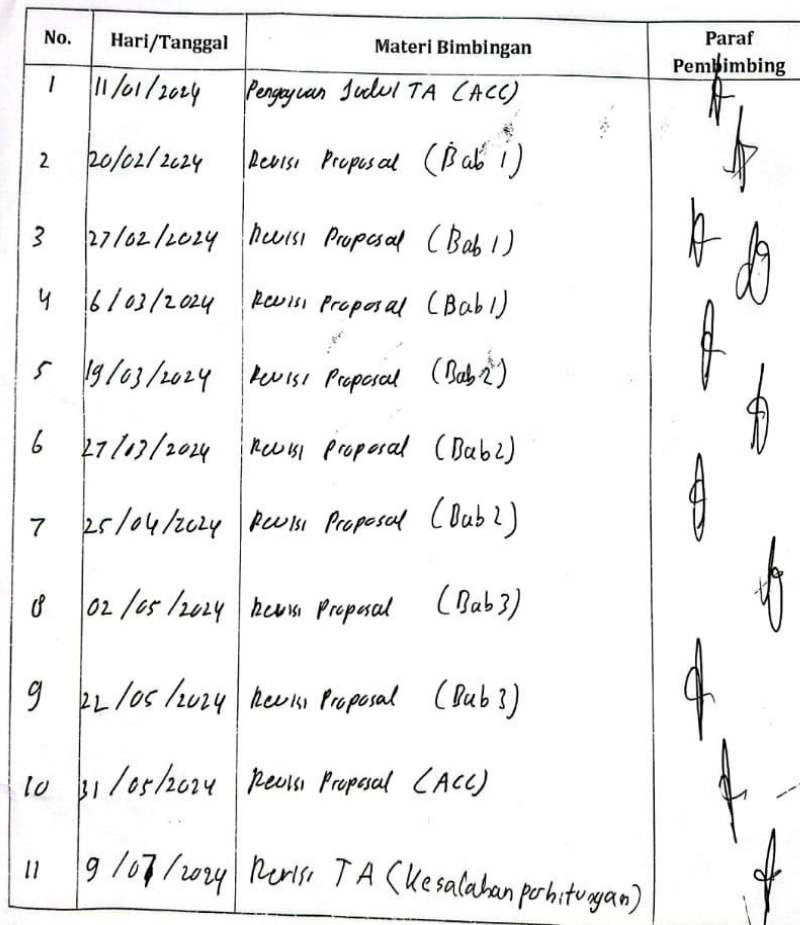 No. Hari/Tanggal Materi Bimbingan Paraf Pembimbing
1 11/01/2024 Pengajuan Judul TA (ACC)
2 20/02/2024 Revisi Proposal (Bab 1)
3 27/02/2024 Revisi Proposal (Bab 1)
4 6/03/2024 Revisi Proposal (Bab 1)
5 19/03/2024 Revisi Proposal (Bab 2)
6 27/03/2024 Revisi Proposal (Bab 2)
7 25/04/2024 Revisi Proposal (Bab 2)
8 02/05/2024 Revisi Proposal (Bab 3)
9 22/05/2024 Revisi Proposal (Bab 3)
10 31/05/2024 Revisi Proposal (ACC)
11 9/07/2024 Revisi TA (Kesalahan perhitungan)